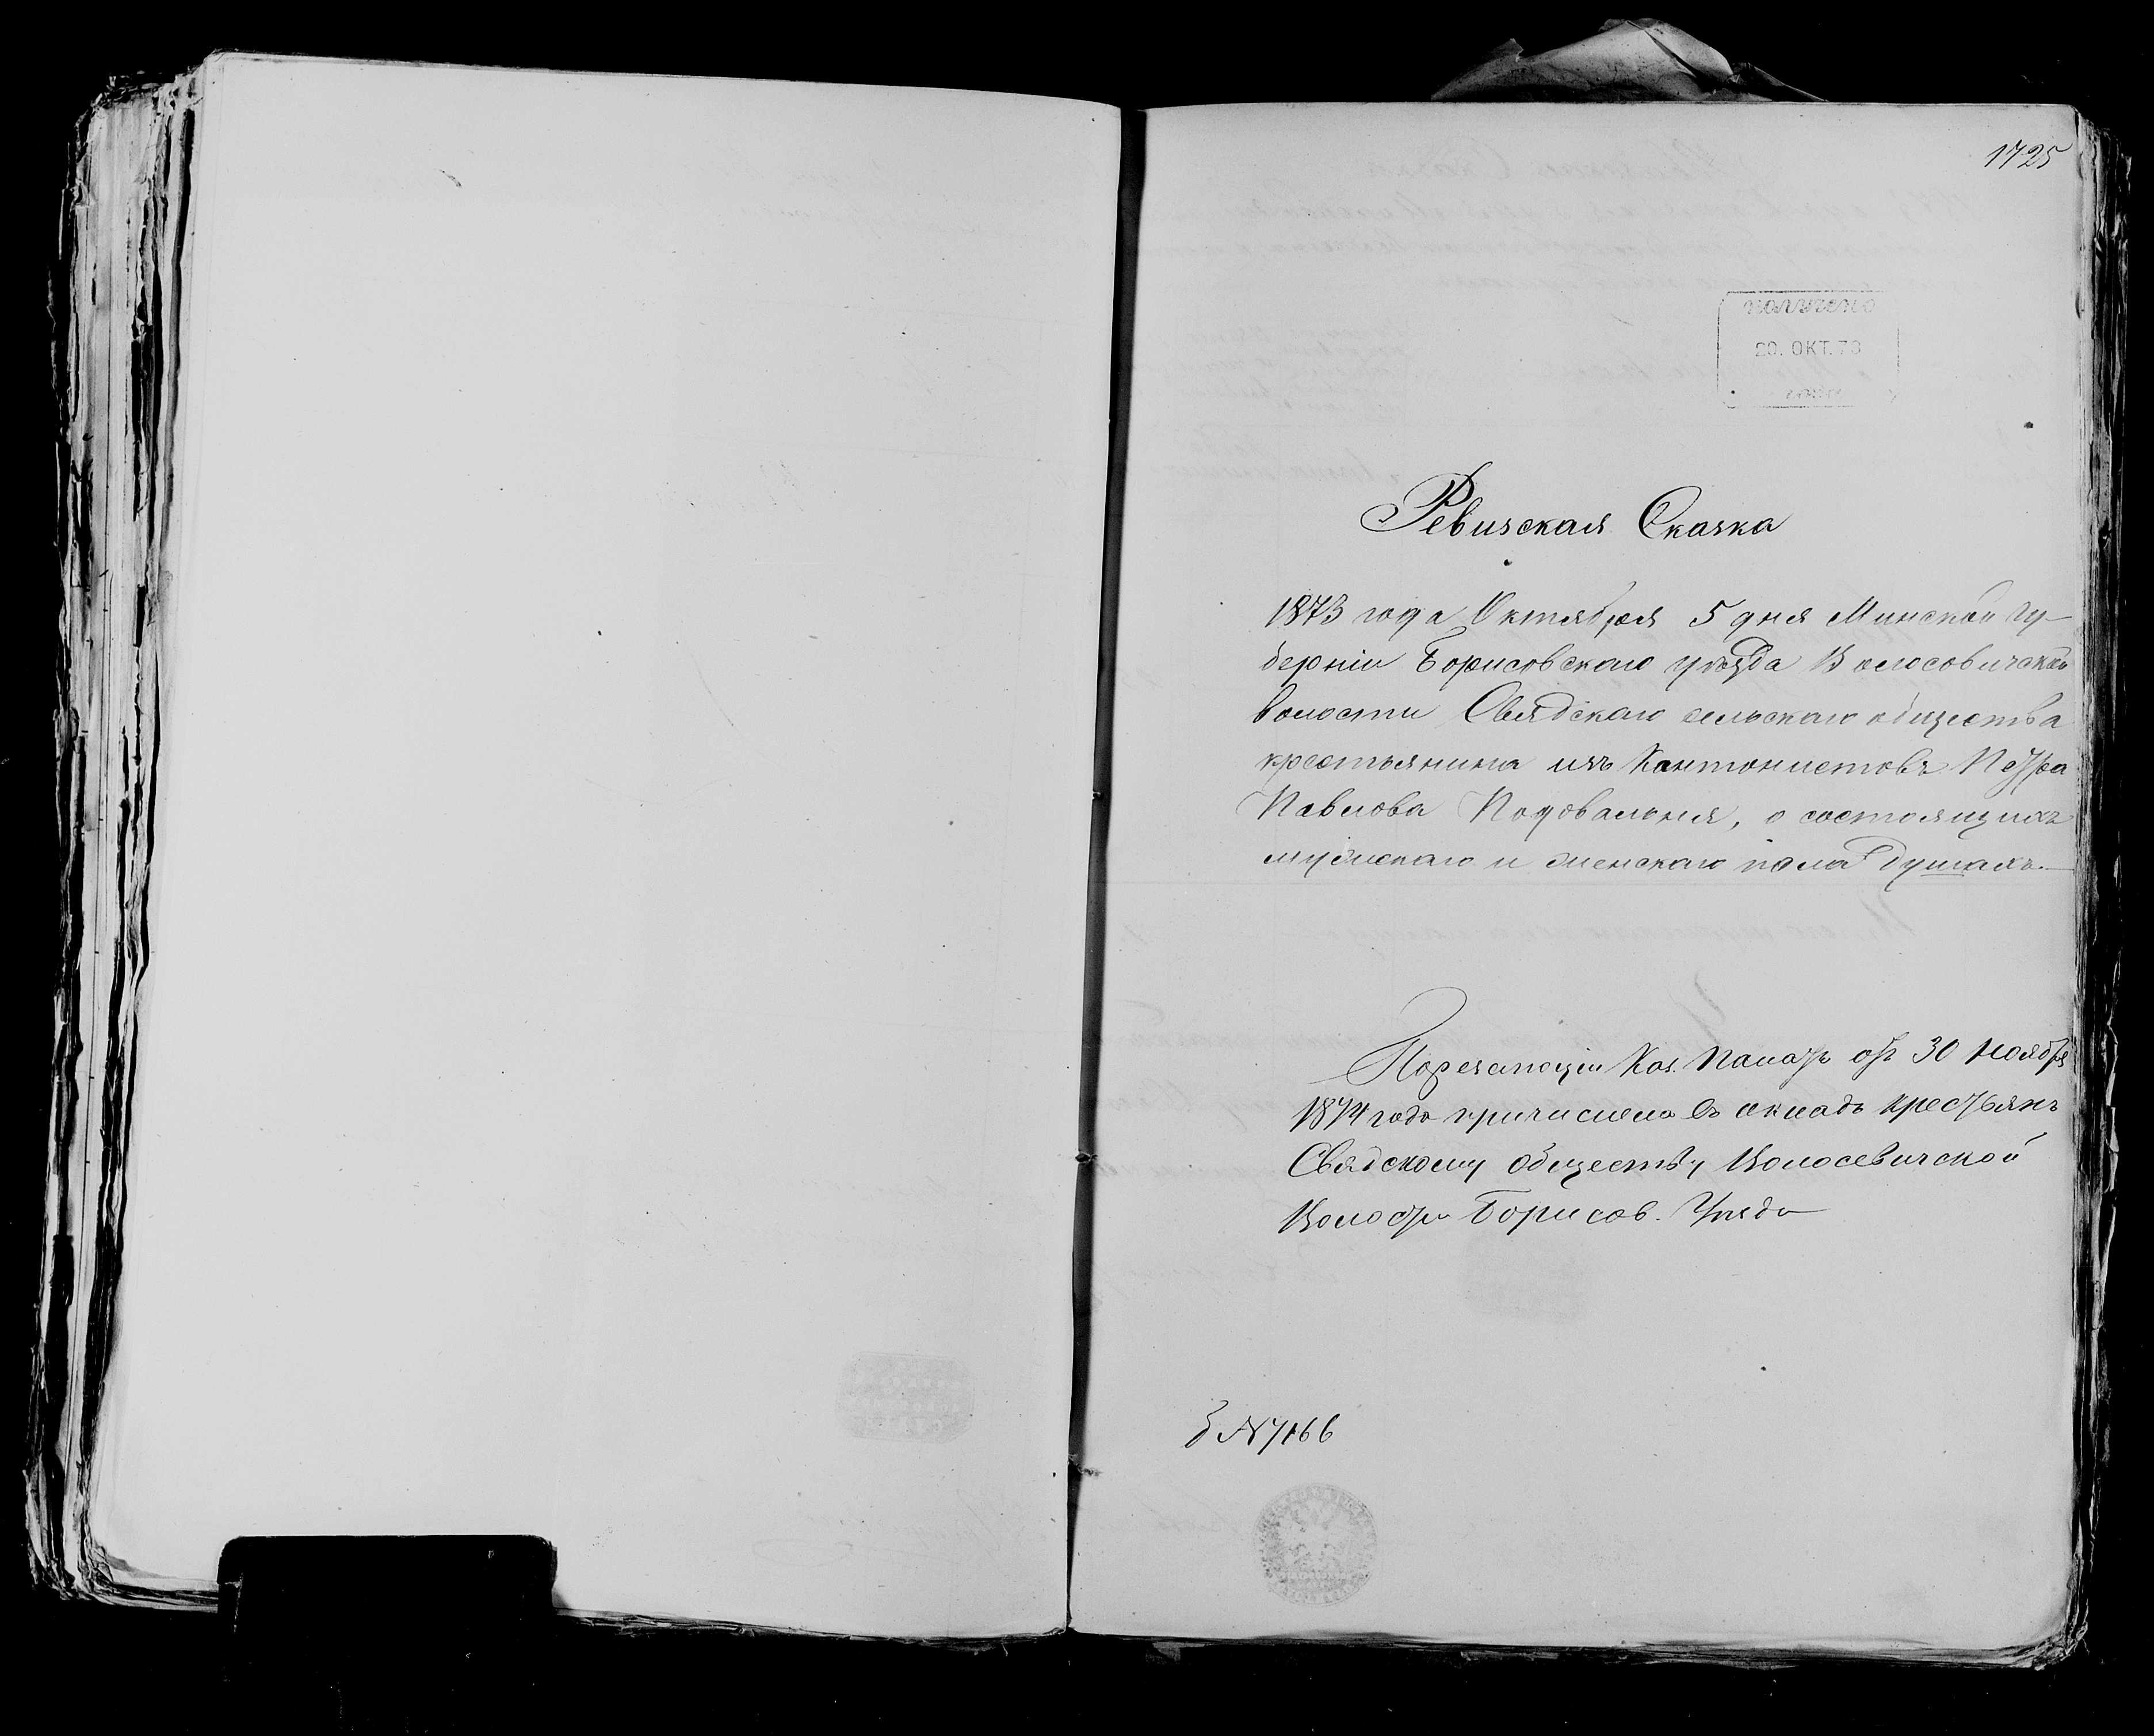 1725
ПОЛУЧЕНО
20. ОКТ. 73
Ревизская Сказка
1873 года Октября 5 дня Минской гу-
берніи Борисовского уѣзда Волосовичской
волости Свядского сельского общества
крестьянина изъ Кантонистовъ Петра
Павлова Подовальня, о состоящихъ
мужескаго и женскаго пола душахъ.
Каз. Палаты отъ 30 Ноября
1874 года причислено въ окладъ крестьянъ
Свядскому обществу Волосевичской
Волости Борисов. Уѣзда
№ 7166